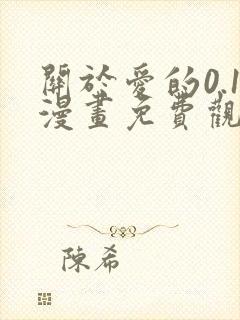 關於愛的0.1
漫畫免費觀
陳希